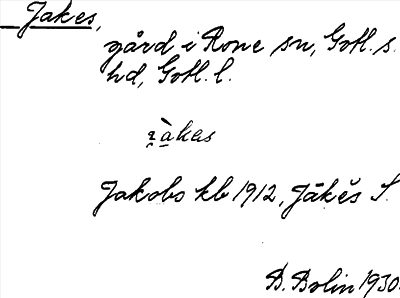 Jakes,
gård i Rone sn, Gotl. s.
hd, Gotl. l.
i̯àkas
Jakobs kb 1912, Jākĕs S.
D. Bolin 1930.